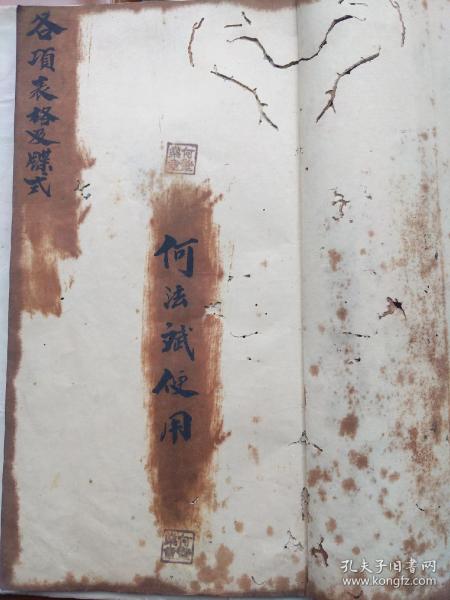 各項表格及牒式
何法斌使用
孔夫子旧书网
www.kongfz.com